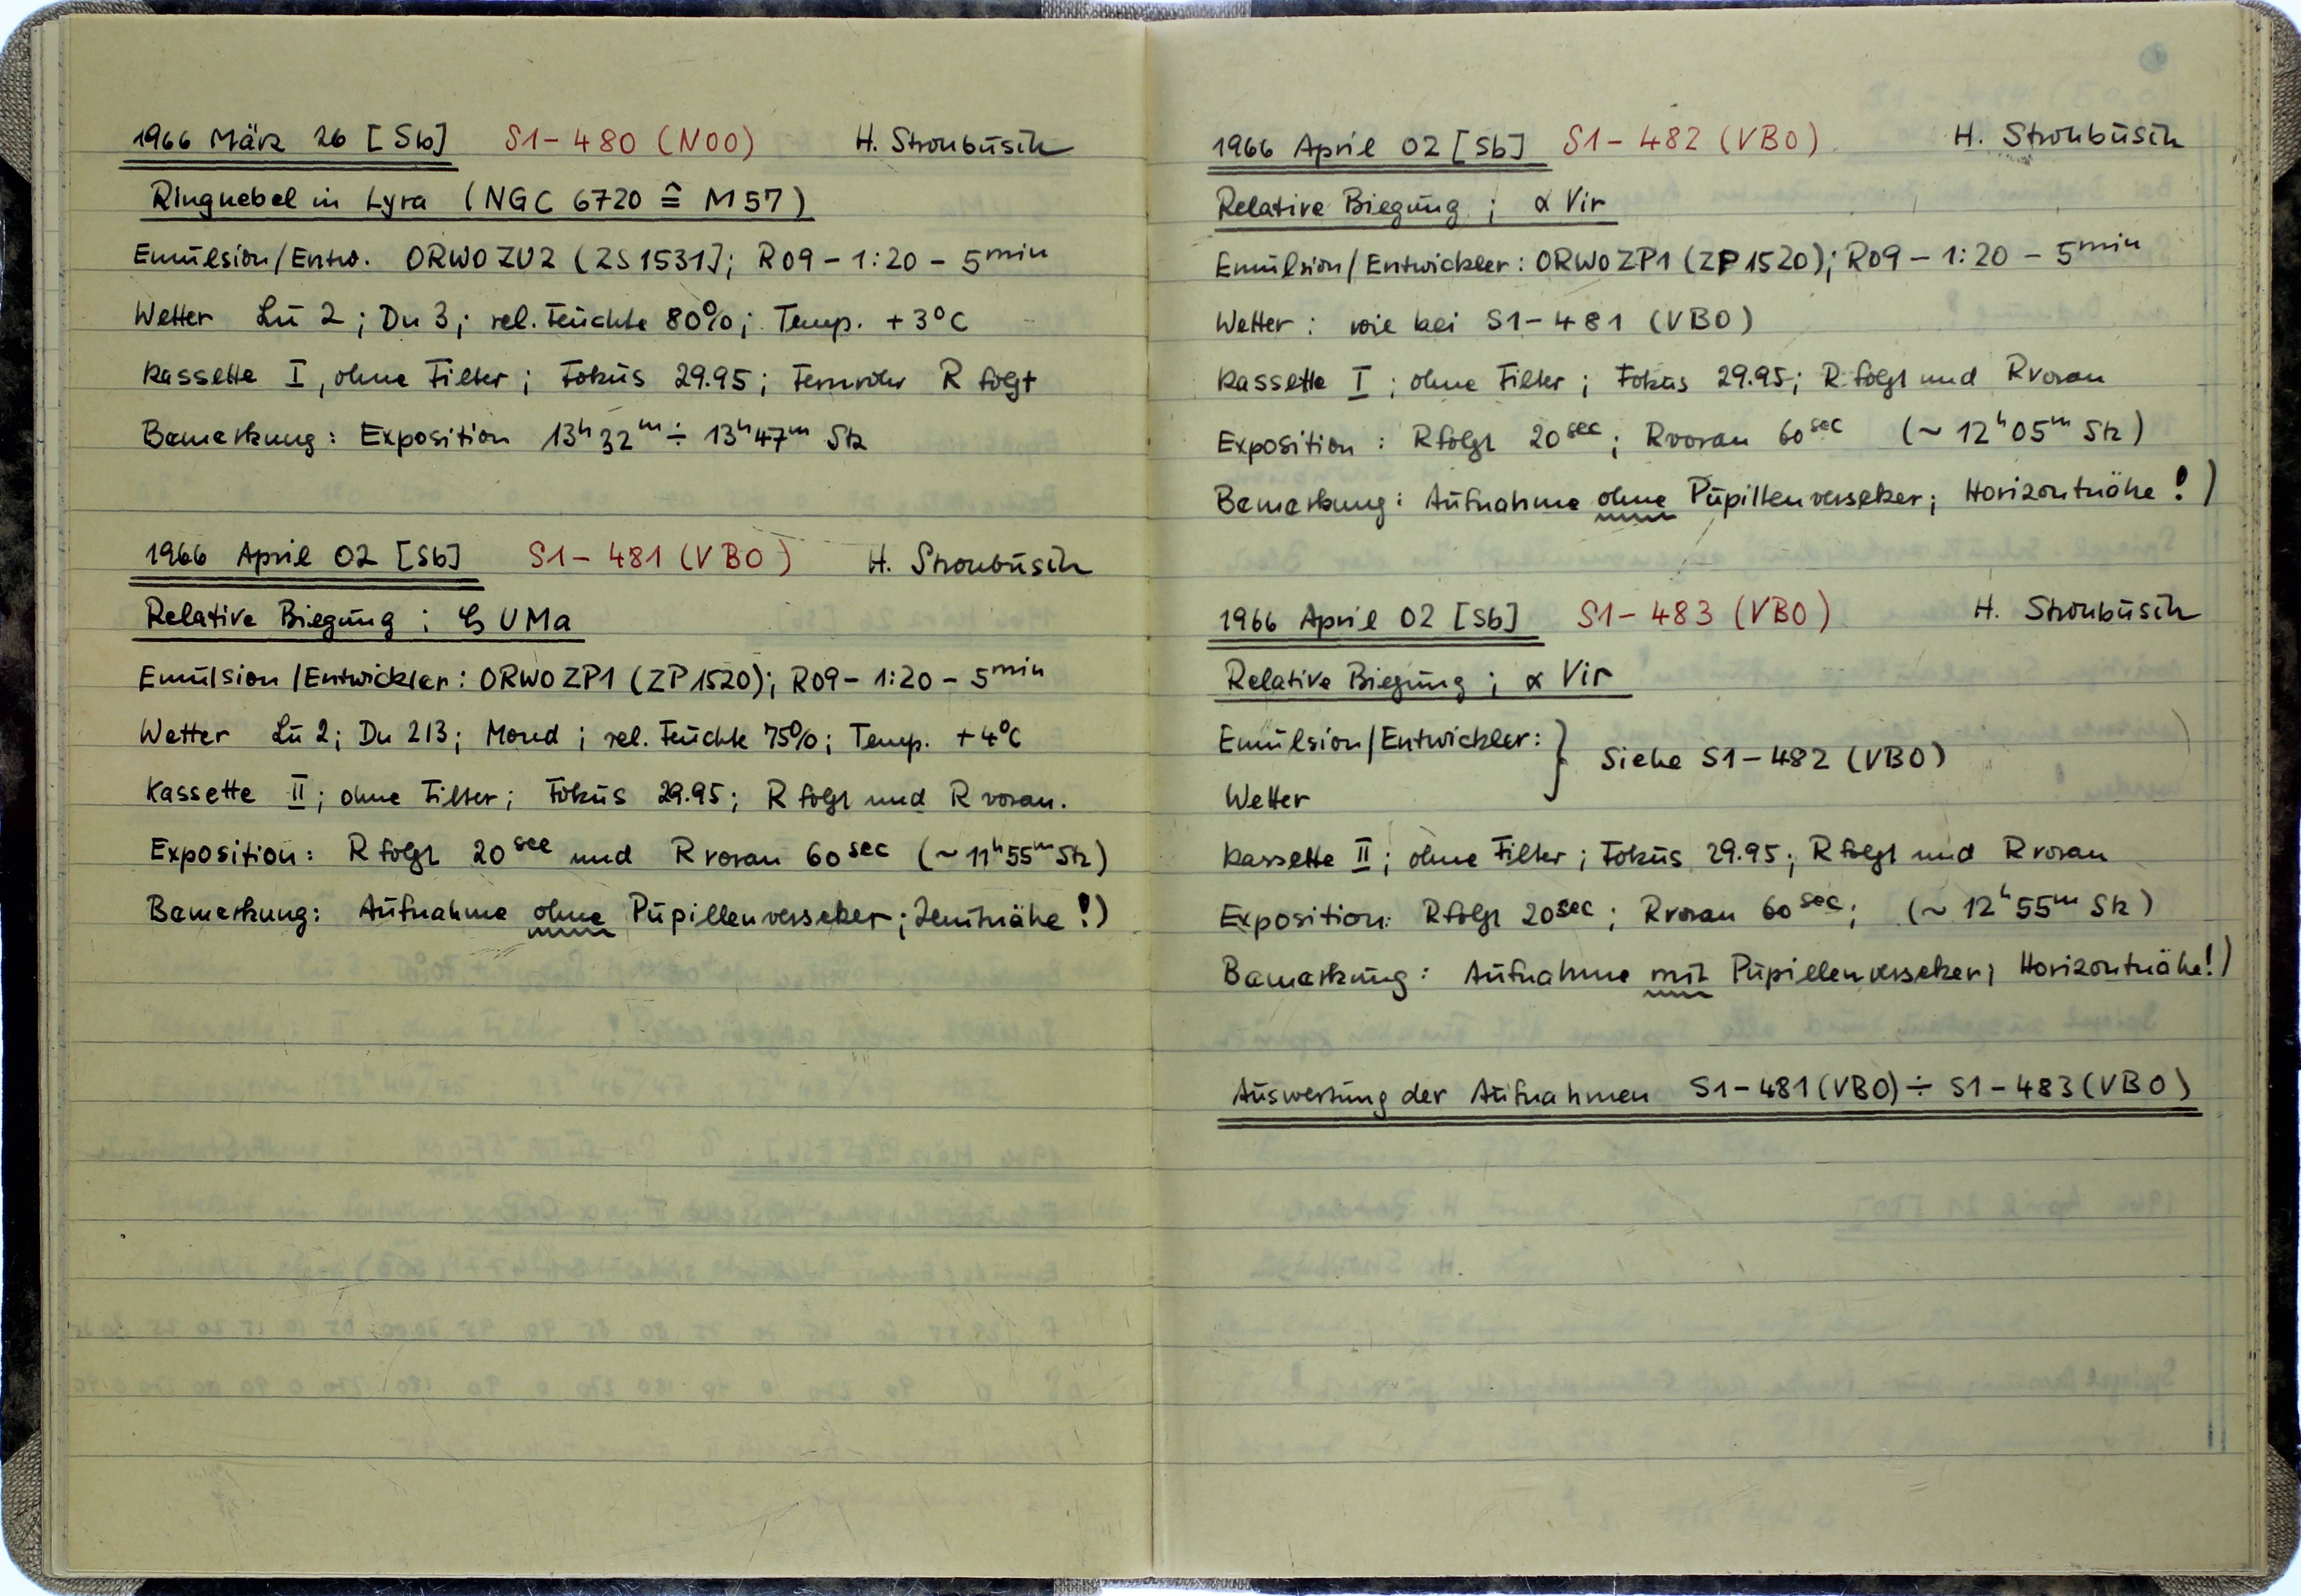 1966 März 26 [Sb] S1-480 (N00) H. Stronbüsch
Ringnebel in Lyra (NGC 6720 ≙ M57)
Emülsion/Entw. ORWO ZU2 (ZS1531); R09 – 1:20 – 5min
Wetter Lü 2; Du 3; rel. Feüchte 80%; Temp. +3°C
Kassette I, ohne Filter; Foküs 29.95; Fernrohr R folgt
Bemerkung: Exposition 13h32m ÷ 13h47m Stz
1966 April 02 [Sb] S1-481 (VB0) H. Stronbüsch
Relative Biegüng; UMa
Emülsion/Entwickler: ORWO ZP1 (ZP1520); R09 – 1:20 – 5min
Wetter Lü 2; Du 2/3; Mond; rel. Feüchte 75%; Temp. +4°C
Kassette II; ohne Filter; Foküs 29.95; R folgt und R voran.
Exposition: R folgt 20sec und R voran 60sec (~11h55m Stz)
Bemerkung: Aüfnahme ohne Püpillenversetzer; Zenitnähe!)
1966 April 02 [Sb] S1-482 (VB0) H. Stronbüsch
Relative Biegüng; α Vir
Emülsion/Entwickler: ORWO ZP1 (ZP1520); R09 – 1:20 – 5min
Wetter: wie bei S1-481 (VB0)
Kassette I; ohne Filter; Foküs 29.95; R folgt und R voran
Exposition: R folgt 20sec; R voran 60sec (~12h05m Stz)
Bemerkung: Aüfnahme ohne Püpillenversetzer; Horizontnähe!)
1966 April 02 [Sb] S1-483 (VB0) H. Stronbüsch
Relative Biegüng; α Vir
Emülsion/Entwickler: } Siehe S1-482 (VB0)
Wetter
Kassette II; ohne Filter; Foküs 29.95; R folgt und R voran
Exposition: R folgt 20sec; R voran 60sec; (~12h55m Stz)
Bemerküng: Aüfnahme mit Püpillenversetzer; Horizontnähe!)
Aüswertüng der Aüfnahmen S1-481 (VB0) ÷ S1-483 (VB0)